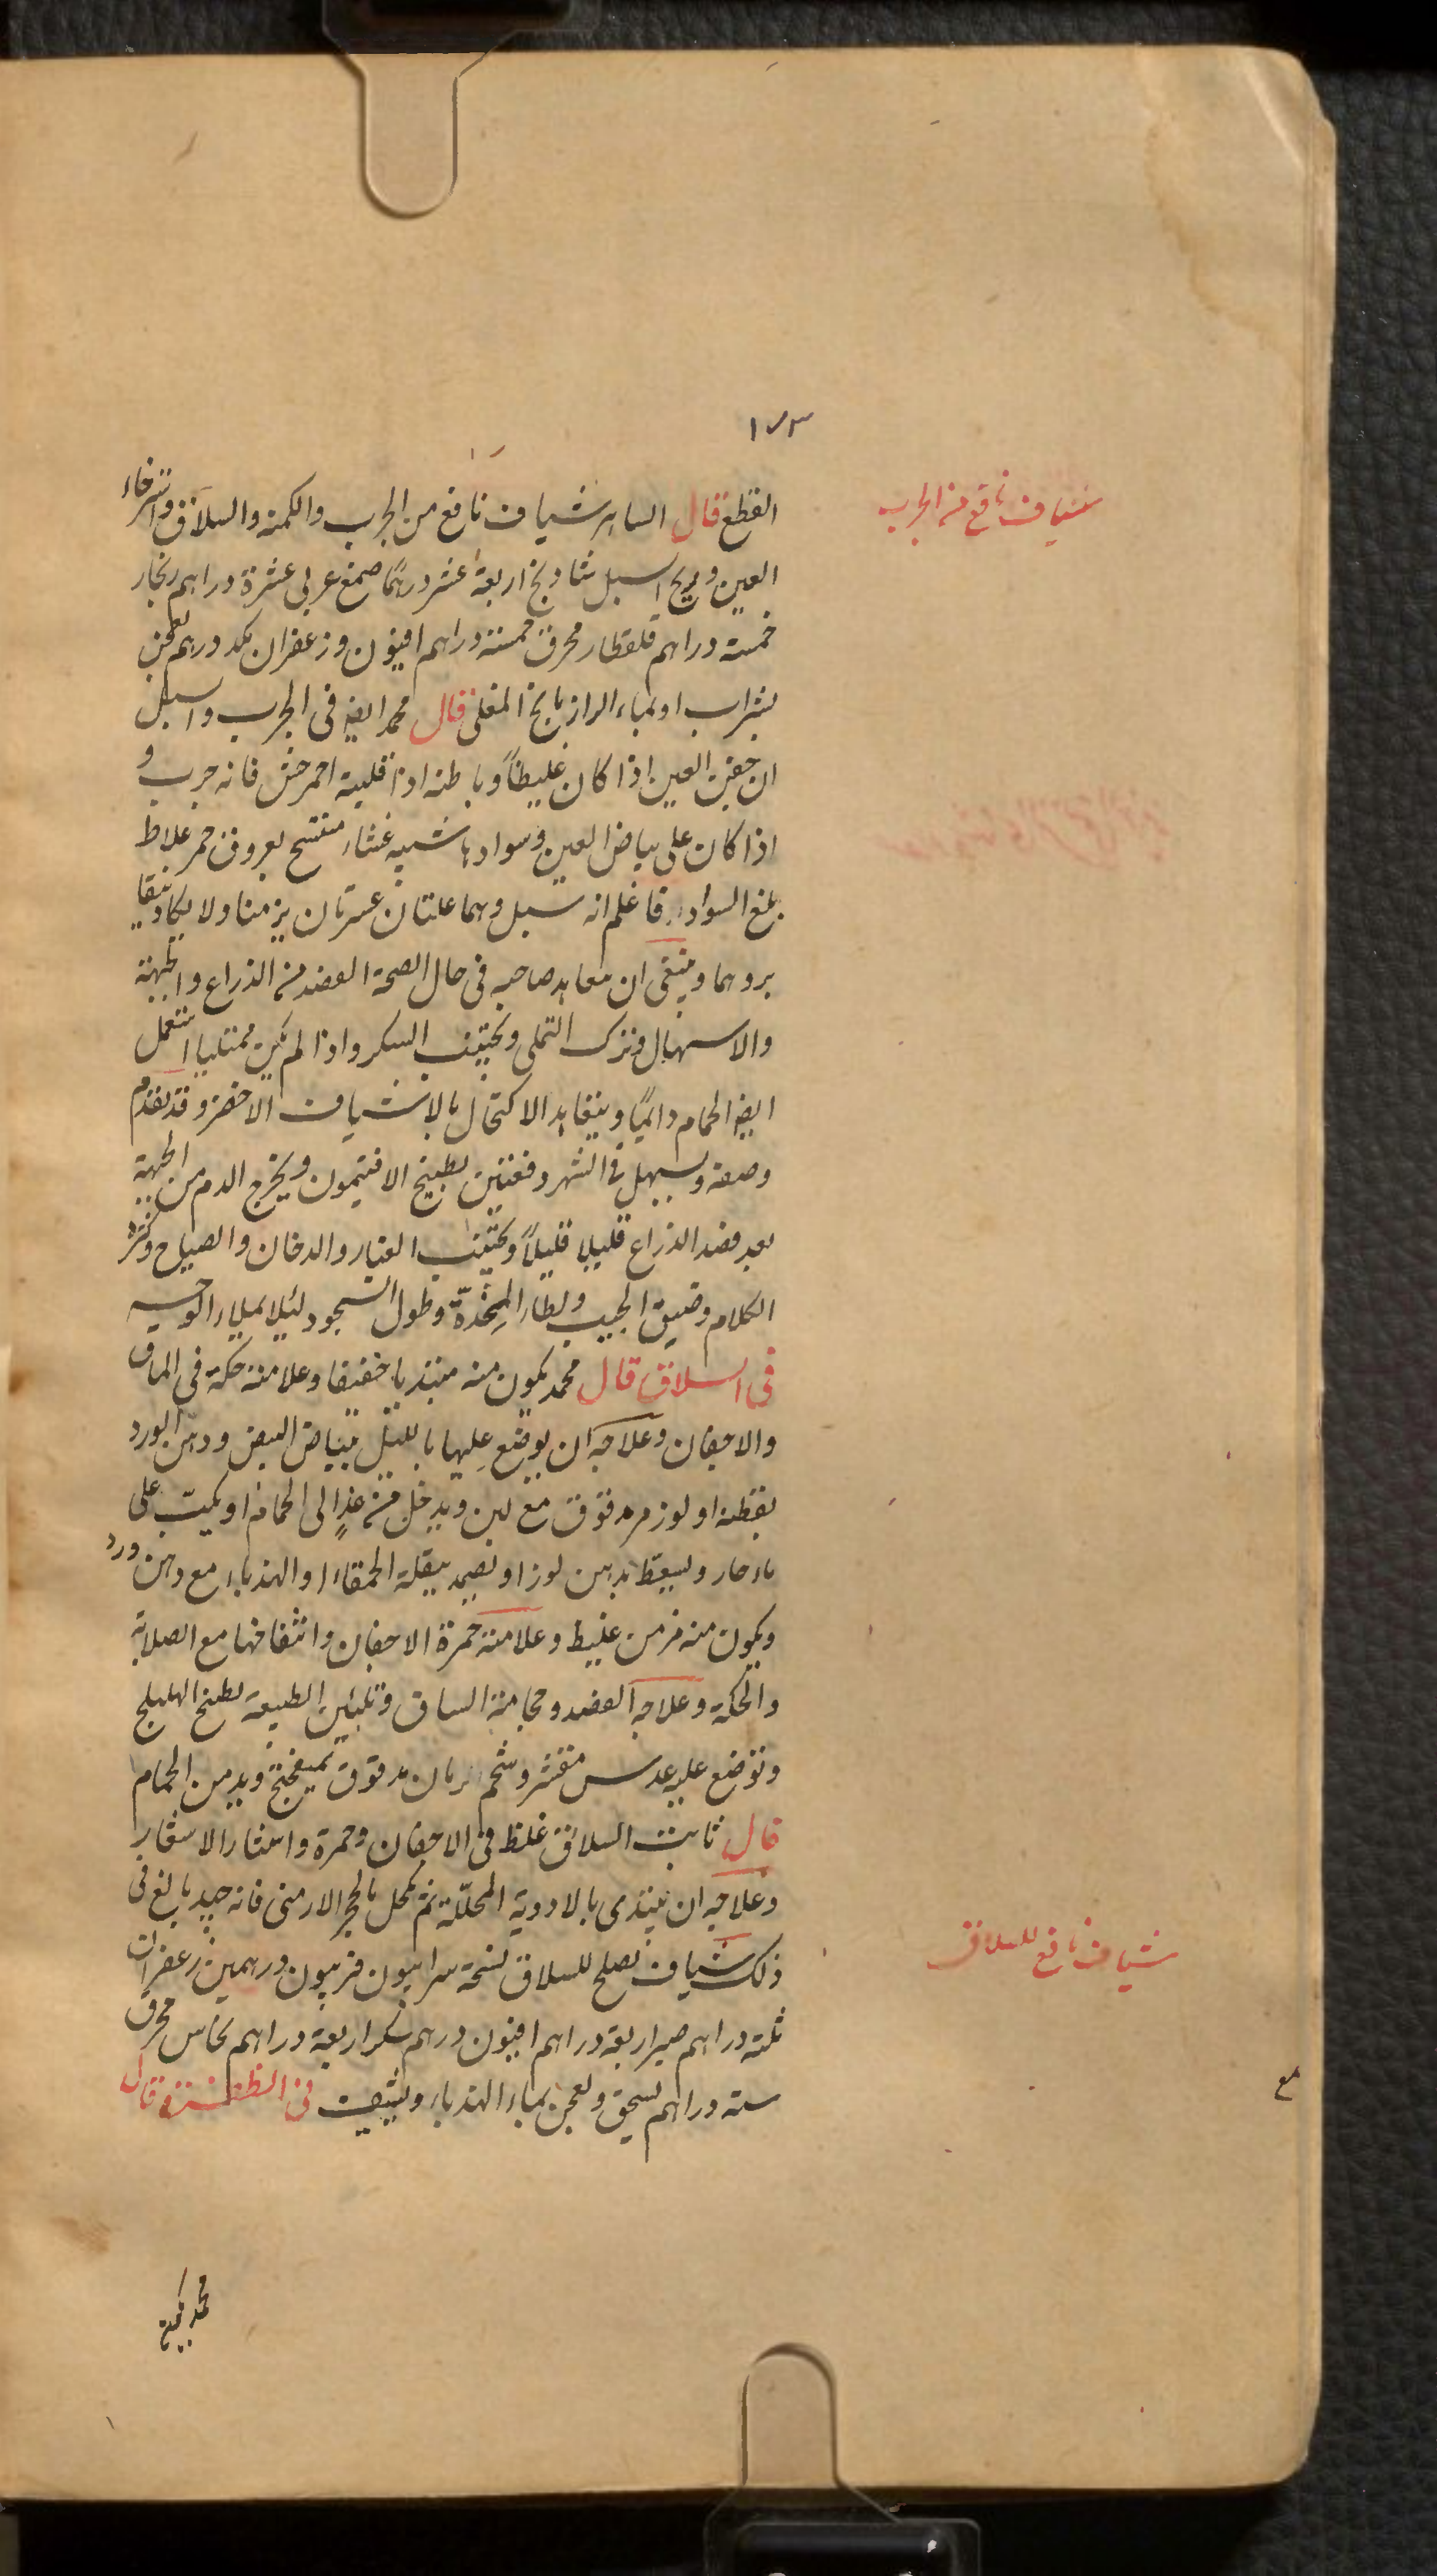 ١٧٣
القطع قال الساهر شياف نافع من الجرب والكمنة والسلاق واسترخاء
شياف نافع من الجرب
العين وريح السبل شادنج اربعة عشر درهما صمغ عربى عشرة دراهم زنجار
خمسة دراهم قلقطار محرق خمسة دراهم افيون وزعفران مكد درهم يعجن
بشراب او بماء الرازيانج المغلى قال محمد ايضا فى الجرب والسبل
ان جفن العين اذا كان غليظاً وباطنه اذا قلبته احمر خشن فانه جرب و
اذا كان على بياض العين وسوادها شبيه غشاء منتسج بعروق حمر غلاظ
بلغ السواد فاعلم انه سبل وهما علتان عسرتان يزمنا ولا يكاد
بروهما وينبغى ان يتعاهد صاحبه فى حال الصحة الفصد من الذراع والجبهة
والاسهال وترك التملى ويجتنب السكر واذا لم يكن ممتليا استعمل
ايضا الحمام دائماً ويتعاهد الاكتحال بالاشياف الاخضر وقد تقدم
وصفه ويسهل فى الشهر دفعتين بطبيخ الافتيمون ويخرج الدم من الجبهة
بعد فصد الذراع قليلا قليلاً ويجتنب الغبار والدخان والصياح وكثرة
الكلام وضيق الجيب ولطاء المِخدّة وطول السجود لئلا يملاء الوجه
فى السلاق قال محمد يكون منه مبتديا خفيفا وعلامته حكة فى الماق
والاجفان وعلاجه ان يوضع عليها بالليل بياض البيض ودهن الورد
بقطنه او لوز مر مدقوق مع لبن ويدخل من غدٍ الى الحمام او يكب على
ماء حار ويسعط بدهن لوز او يضمد ببقلة الحمقاء او الهندباء مع دهن ورد
ويكون منه مزمن غليظ وعلامته حمرة الاجفان وانتفاخها مع الصلابة
والحكة وعلاجه الفصد وحجامة الساق وتليين الطبيعة بطبخ الهليلج
وتوضع عليه عدس مقشر وشحم رمان مدقوق بميفختج ويدمن الحمام
قال ثابت السلاق غلظ فى الاجفان وحمرة وانتثار الاشفار
وعلاجه ان يبتدى بالادوية المحللة ثم يكحل بالحجر الارمنى فانه جيد بالغ فى
ذلك شياف يصلح للسلاق نسخة سرابيون فربيون درهمين زعفران
شياف نافع للسلاق
ثلثة دراهم صبر اربعة دراهم افيون درهم سكر اربعة دراهم نحاس محرق
ستة دراهم يسحق ويعجن بماء الهندباء ويشيف فى الظفرة قال
مع
محمد